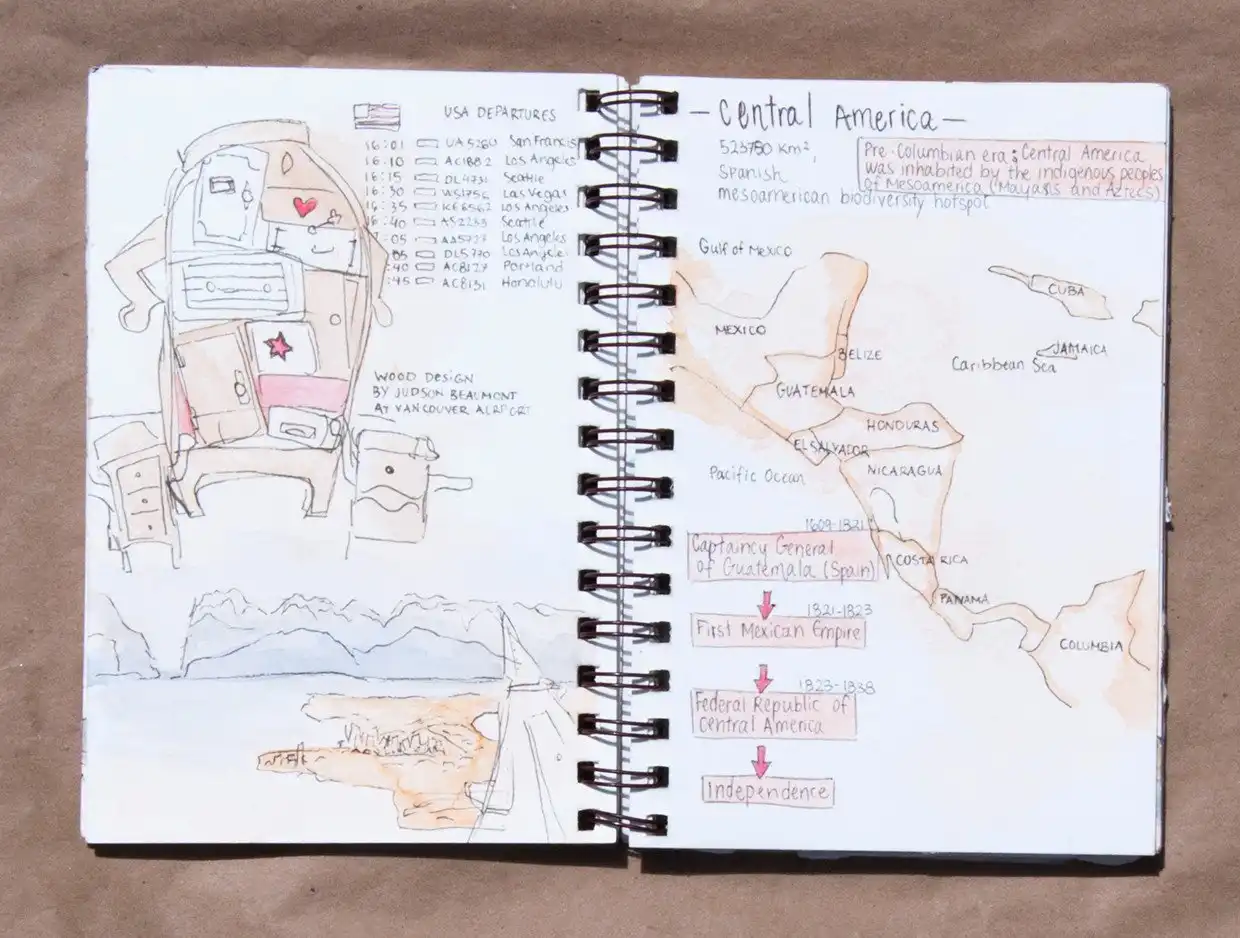 USA DEPARTURES
16:01 UA 5260 San Francis
16:10 AC1882 Los Angeles
16:15 DL4731 Seattle
16:30 WS1756 Las Vegas
16:35 KE6562 Los Angeles
16:40 AS2233 Seattle
:05 AA5727 Los Angeles
05 DL5770 Los Angeles
:40 AC8127 Portland
:45 AC8131 Honolulu
WOOD DESIGN
BY JUDSON BEAUMONT
AT VANCOUVER AIRPORT
– Central America –
523780 km²,
Spanish
mesoamerican biodiversity hotspot
Pre-Columbian era: Central America
was inhabited by the indigenous peoples
of Mesoamerica (Mayans and Aztecs)
Gulf of Mexico
CUBA
MEXICO
JAMAICA
BELIZE
Caribbean Sea
GUATEMALA
HONDURAS
EL SALVADOR
NICARAGUA
Pacific Ocean
1609-1821
Captaincy General
of Guatemala (Spain)
COSTA RICA
PANAMA
1821-1823
First Mexican Empire
COLUMBIA
1823-1838
Federal Republic of
Central America
Independence